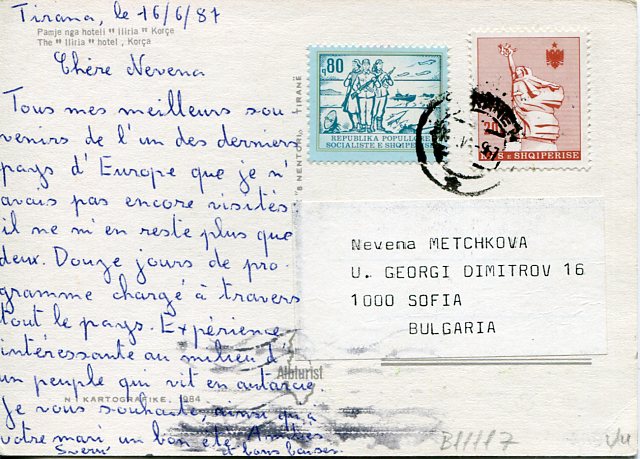 Tirana, le 16/6/87
Pamje nga hoteli "Iliria" Korçe
The "Iliria" hotel, Korça
Chère Nevena
Tous mes meilleurs sou
venirs de l'un des derniers
pays d'Europe que je n'
avais pas encore visités
il ne m'en reste plus que
deux. Douze jours de pro-
gramme chargé à travers
tout le pays. Expérience
intéressante au milieu d'
un peuple qui vit en autarcie.
Je vous souhaite, ainsi qu'à
votre mari un bon été. Amitiés
et bons baisers.
N. KARTOGRAFIKE. 1984
"8 NENTORI" TIRANË
Albturist
q80
REPUBLIKA POPULLORE
SOCIALISTE E SHQIPERISE
RPS E SHQIPERISE
Nevena METCHKOVA
U. GEORGI DIMITROV 16
1000 SOFIA
BULGARIA
B11117